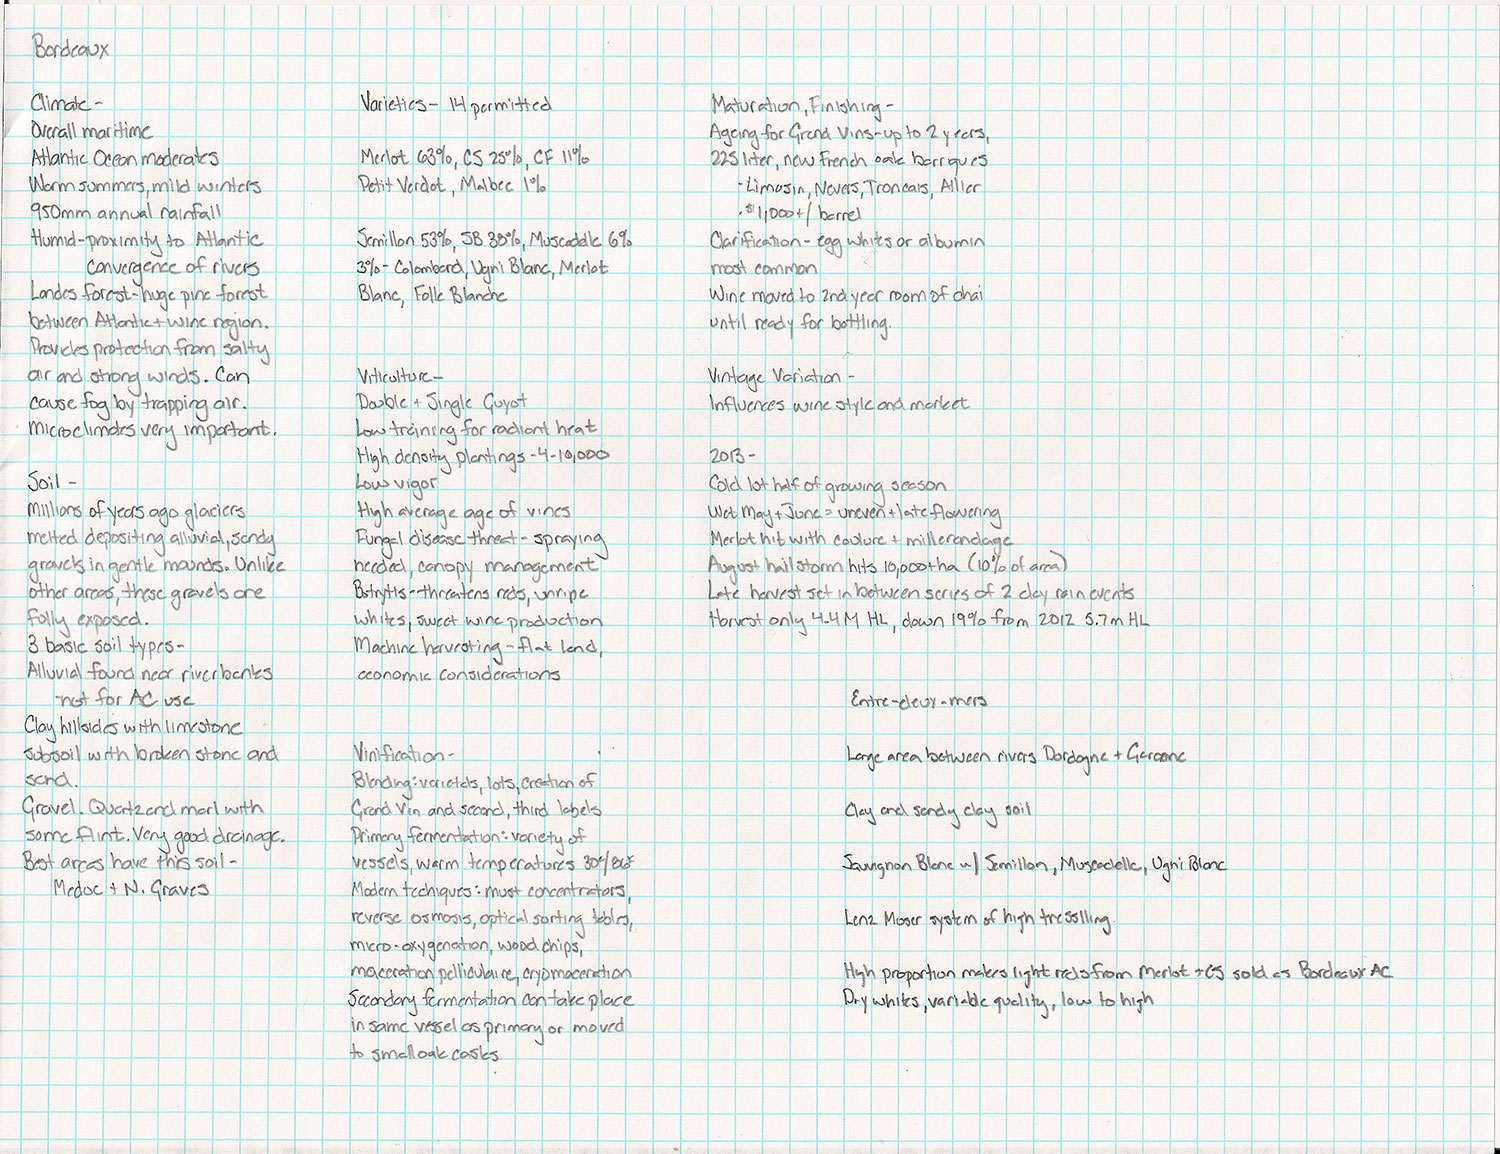 Bordeaux
Climate -
Overall maritime
Atlantic Ocean moderates
Warm summers, mild winters
950mm annual rainfall
Humid - proximity to Atlantic
convergence of rivers
Landes forest - huge pine forest
between Atlantic + wine region.
Provides protection from salty
air and strong winds. Can
cause fog by trapping air.
Microclimates very important.
Soil -
Millions of years ago glaciers
melted depositing alluvial, sandy
gravels in gentle mounds. Unlike
other areas, these gravels are
fully exposed.
3 basic soil types -
Alluvial found near riverbanks
- not for AC use
Clay hillsides with limestone
subsoil with broken stone and
sand.
Gravel. Quartz and marl with
some flint. Very good drainage.
Best areas have this soil -
Medoc + N. Graves
Varieties - 14 permitted
Merlot 63%, CS 25%, CF 11%
Petit Verdot, Malbec 1%
Semillon 53%, SB 38%, Muscadelle 6%
3% - Colombard, Ugni Blanc, Merlot
Blanc, Folle Blanche
Viticulture -
Double + Single Guyot
Low training for radiant heat
High density plantings - 4-10,000
Low vigor
High average age of vines
Fungal disease threat - spraying
needed, canopy management
Botrytis - threatens reds, unripe
whites, sweet wine production
Machine harvesting - flat land,
economic considerations
Vinification -
Blending: varietals, lots, creation of
Grand Vin and second, third labels
Primary fermentation: variety of
vessels, warm temperatures 30°/86°F
Modern techiques: must concentrators,
reverse osmosis, optical sorting tables,
micro-oxygenation, wood chips,
maceration pelliculaire, cryomaceration
Secondary fermentation can take place
in same vessel as primary or moved
to small oak casks.
Maturation, Finishing -
Ageing for Grand Vins - up to 2 years,
225 liter, new French oak barriques
- Limosin, Nevers, Troncais, Allier
. $1,000+ / barrel
Clarification - egg whites or albumin
most common
Wine moved to 2nd year room of chai
until ready for bottling.
Vintage Variation -
Influences wine style and market
2013 -
Cold 1st half of growing season
Wet May + June = uneven + late flowering
Merlot hit with coulure + millerandage
August hail storm hits 10,000+ ha (10% of area)
Late harvest set in between series of 2 day rain events
Harvest only 4.4M HL, down 19% from 2012 5.7M HL
Entre-deux-mers
Large area between rivers Dordogne + Garonne
Clay and sandy clay soil
Sauvignon Blanc w/ Semillon, Muscadelle, Ugni Blanc
Lenz Moser system of high tresslling.
High proportion makes light reds from Merlot + CS sold as Bordeaux AC
Dry whites, variable quality, low to high